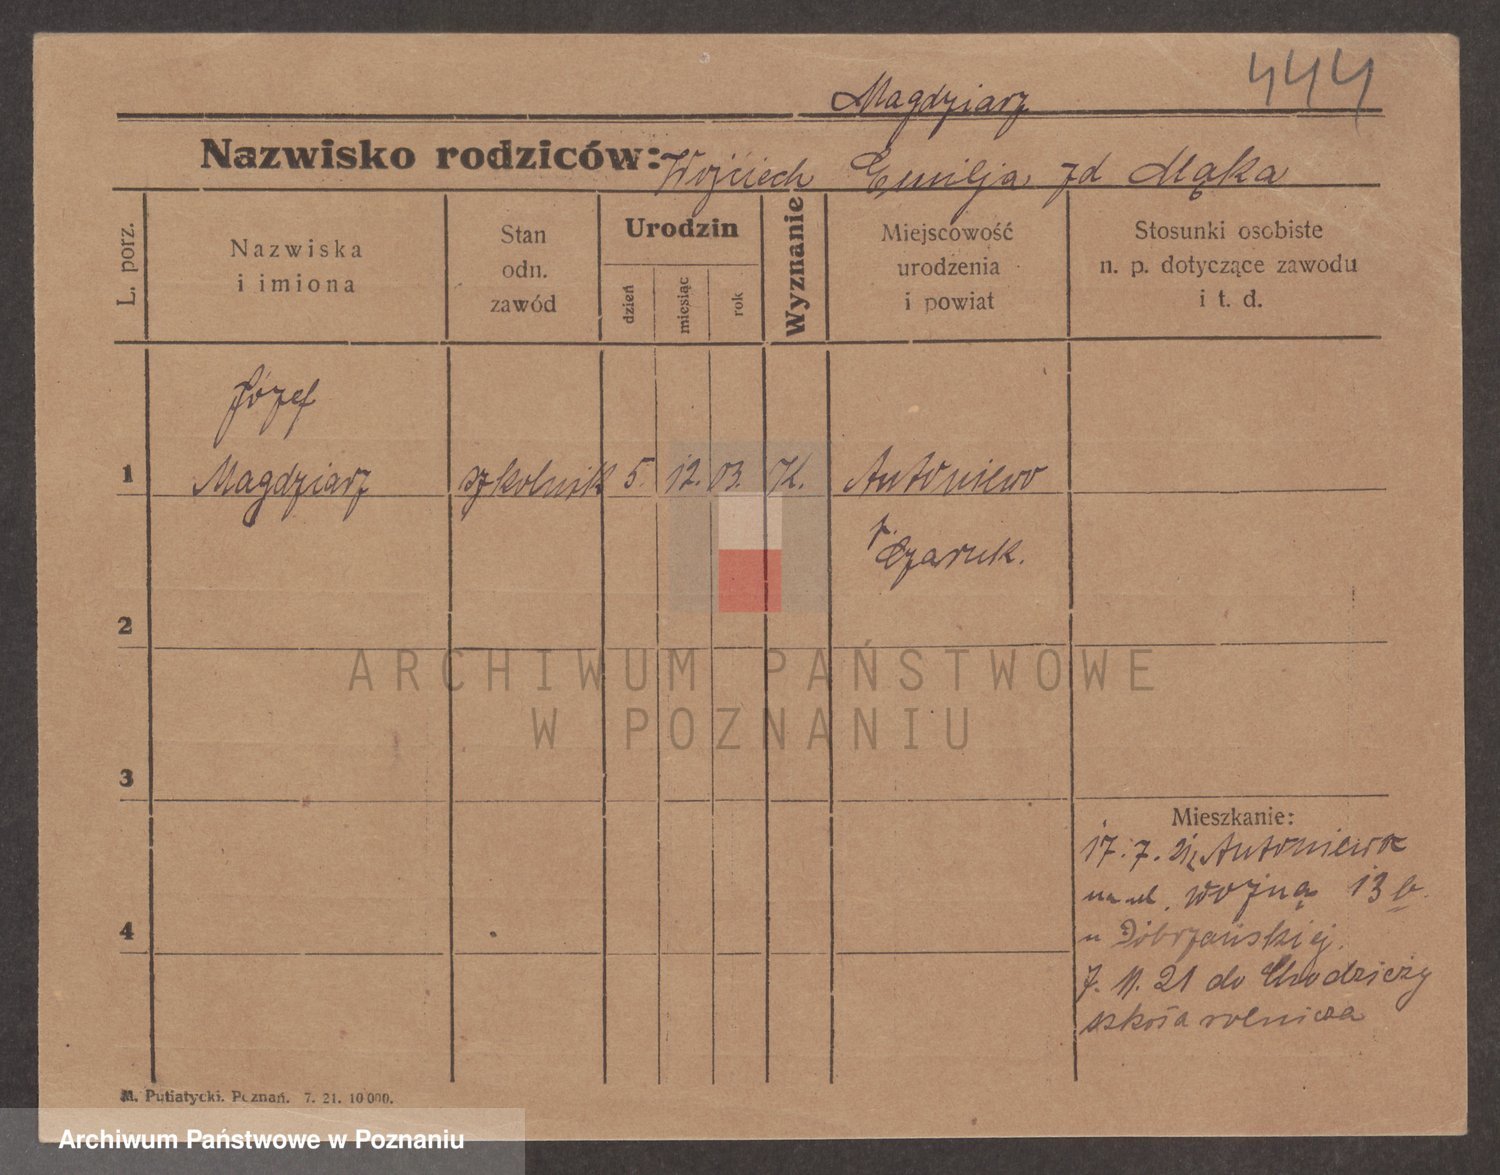 444
Magdziarz
Nazwisko rodziców: Wojciech Emilja zd Mąka
L. porz.
Nazwiska
i imiona
Stan
odn.
zawód
Urodzin
dzień
miesiąc
rok
Wyznanie
Miejscowość
urodzenia
i powiat
Stosunki osobiste
n. p. dotyczące zawodu
i t. d.
Józef
1 Magdziarz szkolnik 5. 12. 03. K. Antoniewo
p.
Czarnk.
2
ARCHIWUM PAŃSTWOWE
W POZNANIU
3
Mieszkanie:
17. 7. 21 z Antoniewa
na ul. Wojną 13 b.
4
u Dobrzańskiej.
7. 11. 21 do Chodzieży
szkoła rolnicza
M. Putiatycki. Poznań. 7. 21. 10 000.
Archiwum Państwowe w Poznaniu